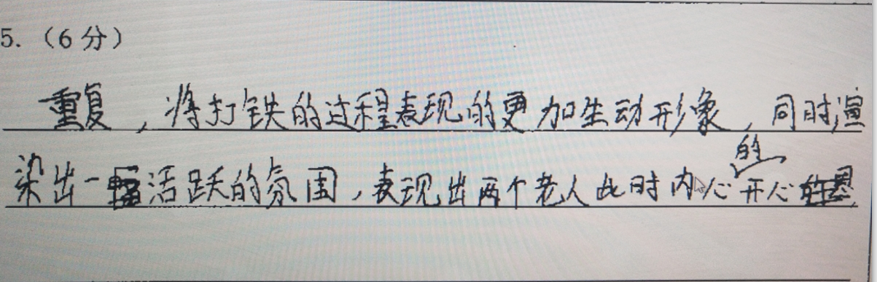 5.（6分）
重复，将打铁的过程表现的更加生动形象，同时渲
染出一活跃的氛围，表现出两个老人此时内心的开心